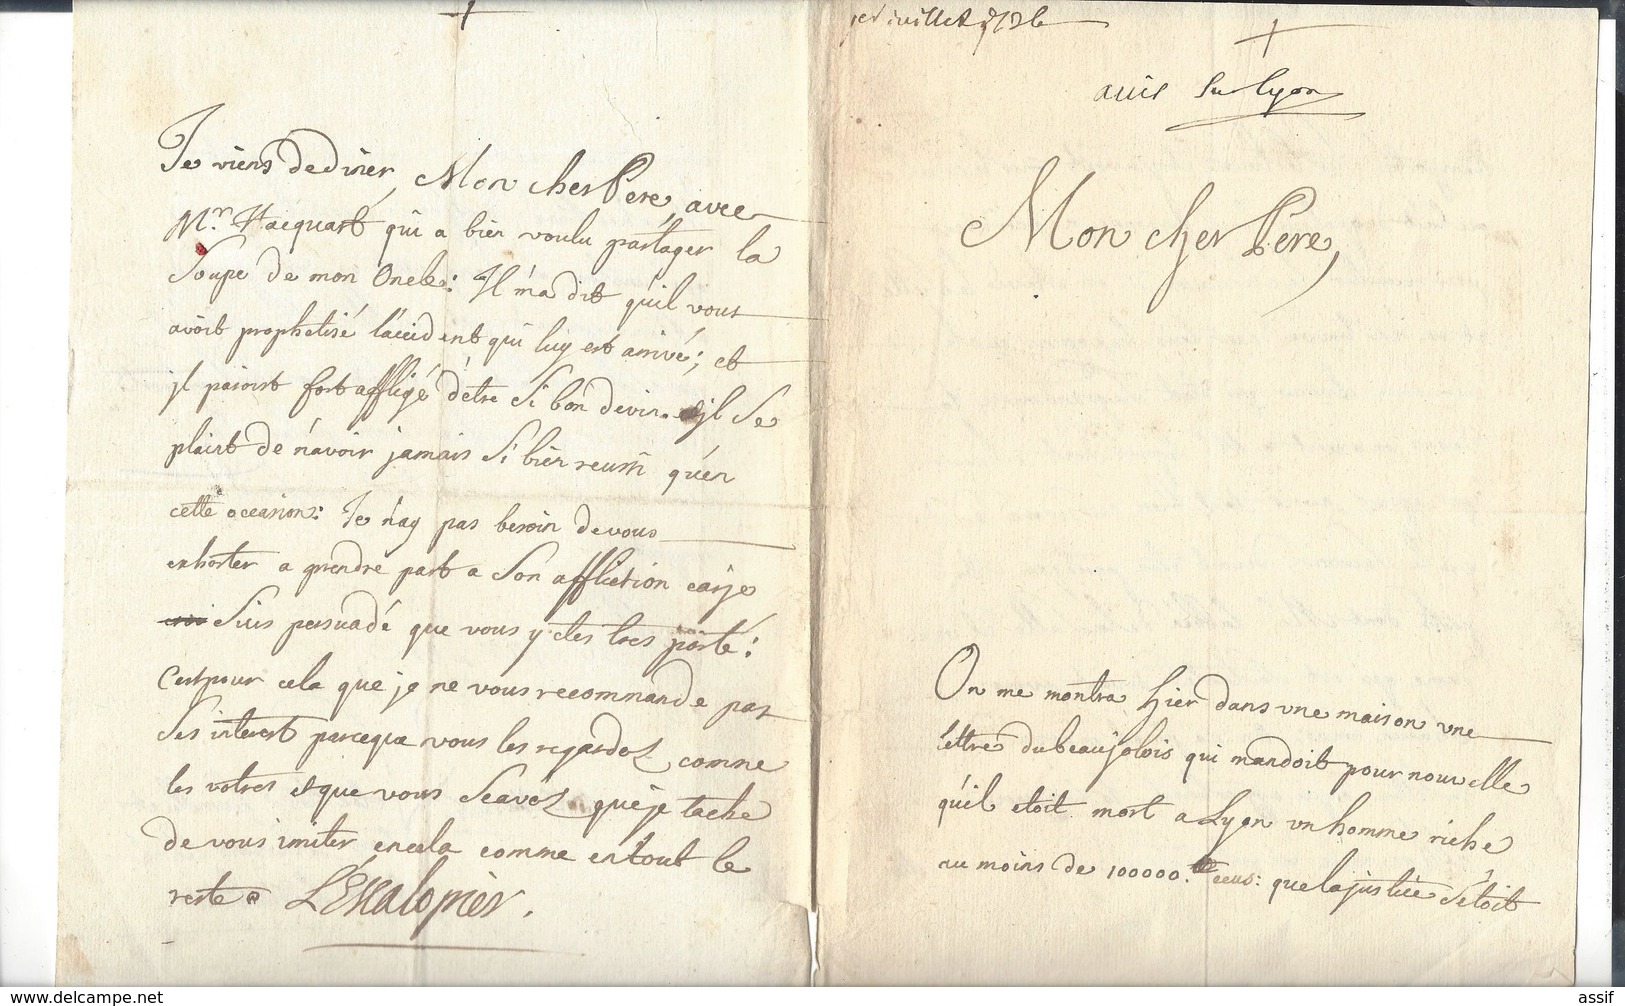 Je viens de diner, Mon cher Pere, avec
Mr. Hacquart qui a bien voulu partager la
Soupe de mon Oncle: Il m'a dit qu'il vous
avoit prophetisé l'accident qui luy est arrivé; et
jl paroist fort affligé d'être Si bon devin. jl Se
plaint de n'avoir jamais Si bien reussi qu'en
cette occasion: Je n'ay pas besoin de vous
exhorter a prendre part a Son affliction car je
Suis persuadé que vous y êtes tres porté:
C'est pour cela que je ne vous recommande pas
Ses interest parceque vous les regardez comme
les votres et que vous Scavez que je tache
de vous imiter en cela comme en tout le
reste L'Escalopier.
1er juillet 1736
avis Sur Lyon
Mon cher Pere,
On me montra hier dans une maison une
lettre du beaujolois qui mandoit pour nouvelle
qu'il etoit mort a Lyon un homme riche
au moins de 100000. ecus: que la justice S'etoit
www.delcampe.net
assif